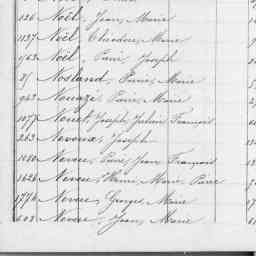 1126 Noël, Jean, Marie
1137 Noël Théodore, Marie
962 Noël, Pierre, Joseph
Nosland, Pierre, Marie
963 Nouazé, Pierre, Marie
1077 Nouet, Joseph, Julien François
263 Nevoux, Joseph
1080 Neveu, Pierre, Jean François
1626 Neveu, Henri, Marie, Pierre
1776 Neveu, Georges Marie
603 Neveu, Jean, Marie